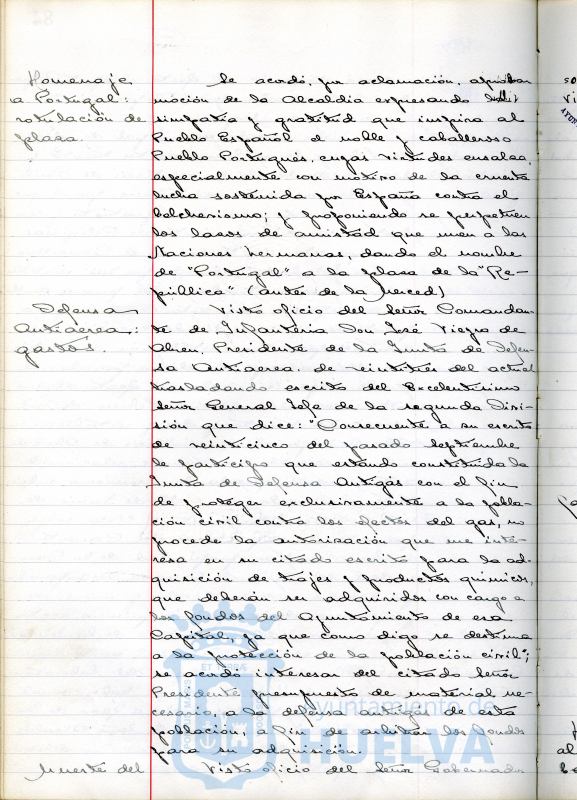 Homenaje
a Portugal:
rotulación de
plaza.
Se acordó, por aclamación, aprobar
moción de la Alcaldia expresando
simpatía y gratitud que inspira al
Pueblo Español el noble y caballeroso
Pueblo Portugués, cuyas virtudes ensalza,
especialmente con motivo de la cruenta
lucha sostenida por España contra el
bolchevismo; y proponiendo se perpetúen
los lazos de amistad que unen a las
Naciones hermanas, dando el nombre
de "Portugal" a la plaza de la "Re-
pública" (antes de la Merced)
Defensa
Antiaerea:
gastos.
Visto oficio del Señor Comandan-
te de Infantería Don José Vierga de
Abreu, Presidente de la Junta de Defen-
sa Antiaerea, de veintitres del actual
trasladando escrito del Excelentísimo
Señor General Jefe de la segunda Divi-
sión que dice: "Consecuente a su escrito
de veinticinco del pasado Septiembre
le participo que estando constituida la
Junta de Defensa Antigás con el fin
de proteger exclusivamente a la pobla-
ción civil contra los efectos del gas, no
procede la autorización que me inte-
resa en su citado escrito para la ad-
quisición de trajes y productos químicos,
que deberán ser adquiridos con cargo a
los fondos del Ayuntamiento de esa
Capital, ya que como digo se destina
a la protección de la población civil";
se acordó interesar del citado Señor
Presidente presupuesto de material ne-
cesario, a la defensa antigas de esta
población, a fin de arbitrar los fondos
para su adquisición.
Muerte del
Visto oficio del Señor Gobernador
Ayuntamiento de
HUELVA